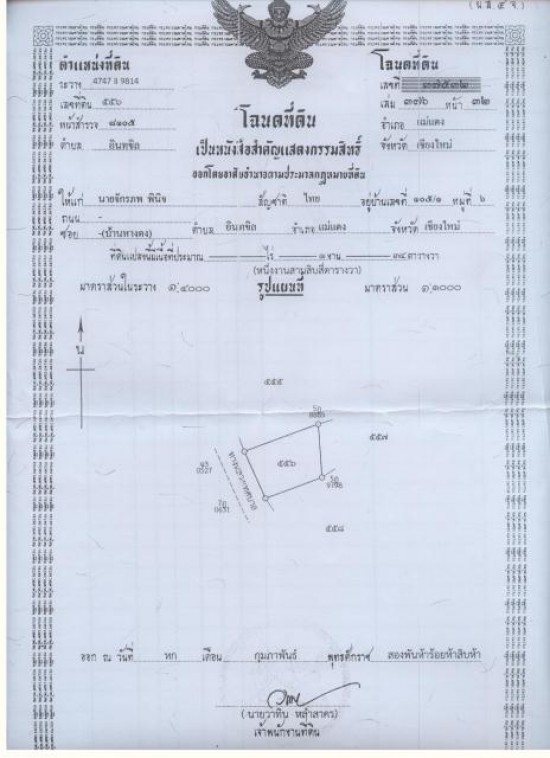 (น.ส.๔ จ)
ตำแหน่งที่ดิน
ระวาง 4747 II 9814
เลขที่ดิน ๕๕๖
หน้าสำรวจ ๘๑๐๕
ตำบล อินทขิล
โฉนดที่ดิน
เลขที่ ๓๗๕๓๒
เล่ม ๓๗๖ หน้า ๓๒
อำเภอ แม่แตง
จังหวัด เชียงใหม่
โฉนดที่ดิน
เป็นหนังสือสำคัญแสดงกรรมสิทธิ์
ออกโดยอาศัยอำนาจตามประมวลกฎหมายที่ดิน
ให้แก่ นายจักรภพ พินิจ สัญชาติ ไทย อยู่บ้านเลขที่ ๑๐๕/๑ หมู่ที่ ๖
ถนน -
ซอย -(บ้านหางดง) ตำบล อินทขิล อำเภอ แม่แตง จังหวัด เชียงใหม่
ที่ดินแปลงนี้มีเนื้อที่ประมาณ ไร่ ๑ งาน ๓๔ ตารางวา
(หนึ่งงานสามสิบสี่ตารางวา)
มาตราส่วนในระวาง ๑:๔๐๐๐ รูปแผนที่ มาตราส่วน ๑:๑๐๐๐
น
๕๕๕
๕๕๗
๕๕๖
0527
0631
ทางสาธารณประโยชน์
๕๕๘
ออก ณ วันที่ หก เดือน กุมภาพันธ์ พุทธศักราช สองพันห้าร้อยห้าสิบห้า
เจ้าพนักงานที่ดิน